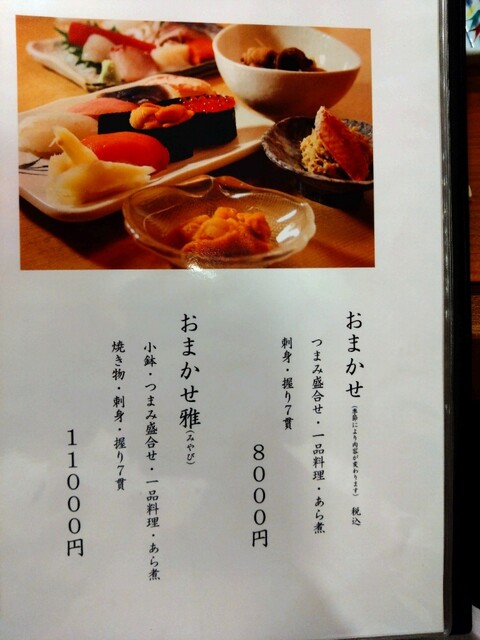 おまかせ(季節により内容が変わります) 税込
つまみ盛合せ・一品料理・あら煮
刺身・握り7貫
8000円
おまかせ雅(みやび)
小鉢・つまみ盛合せ・一品料理・あら煮
焼き物・刺身・握り7貫
11000円